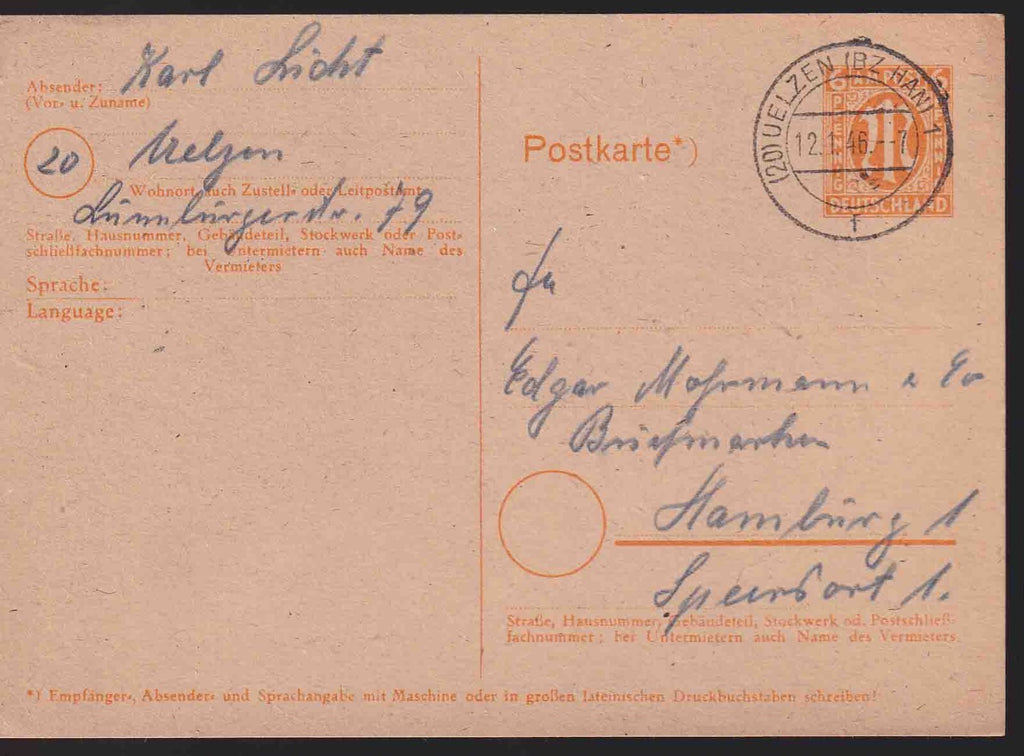 Absender: Karl Licht
(Vor- u. Zuname)
20 Uelzen
Wohnort, auch Zustell- oder Leitpostamt
Lüneburgerstr. 79
Straße, Hausnummer, Gebäudeteil, Stockwerk oder Post-
schließfachnummer; bei Untermietern auch Name des
Vermieters
Sprache:
Language:
Postkarte*)
(20) UELZEN (BZ. HAN) 1
12.1.46.--7
f
6
DEUTSCHLAND
Fa
Edgar Mohrmann & Co
Briefmarken
Hamburg 1
Speersort 1.
Straße, Hausnummer, Gebäudeteil, Stockwerk od. Postschließ-
fachnummer; bei Untermietern auch Name des Vermieters
*) Empfänger-, Absender- und Sprachangabe mit Maschine oder in großen lateinischen Druckbuchstaben schreiben!